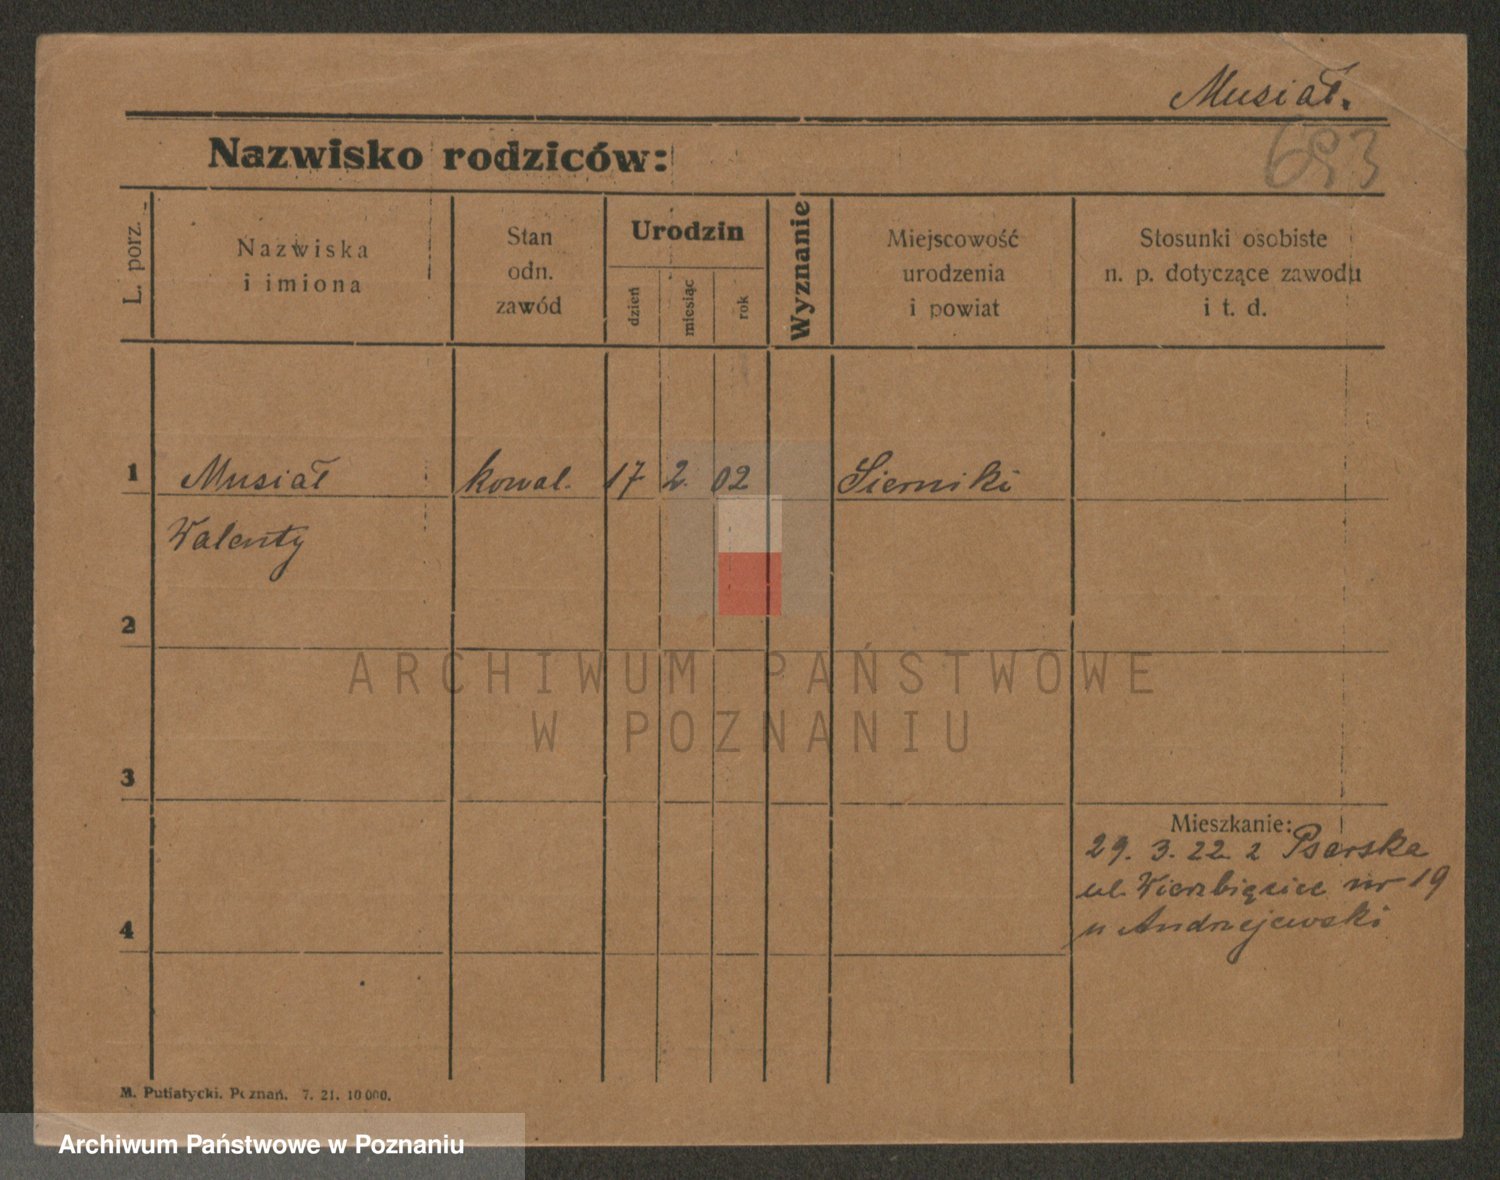 Musiał.
693
Nazwisko rodziców:
L. porz.
Nazwiska
i imiona
Stan
odn.
zawód
Urodzin
dzień
miesiąc
rok
Wyznanie
Miejscowość
urodzenia
i powiat
Stosunki osobiste
n. p. dotyczące zawodu
i t. d.
1 Musiał kowal. 17 2. 02 Sierniki
Walenty
2
ARCHIWUM PAŃSTWOWE
W POZNANIU
3
Mieszkanie:
29. 3. 22. z Psarska
ul. Wierzbięcice nr 19
4 u Andrzejewski
M. Putiatycki. Poznań. 7. 21. 10000.
Archiwum Państwowe w Poznaniu